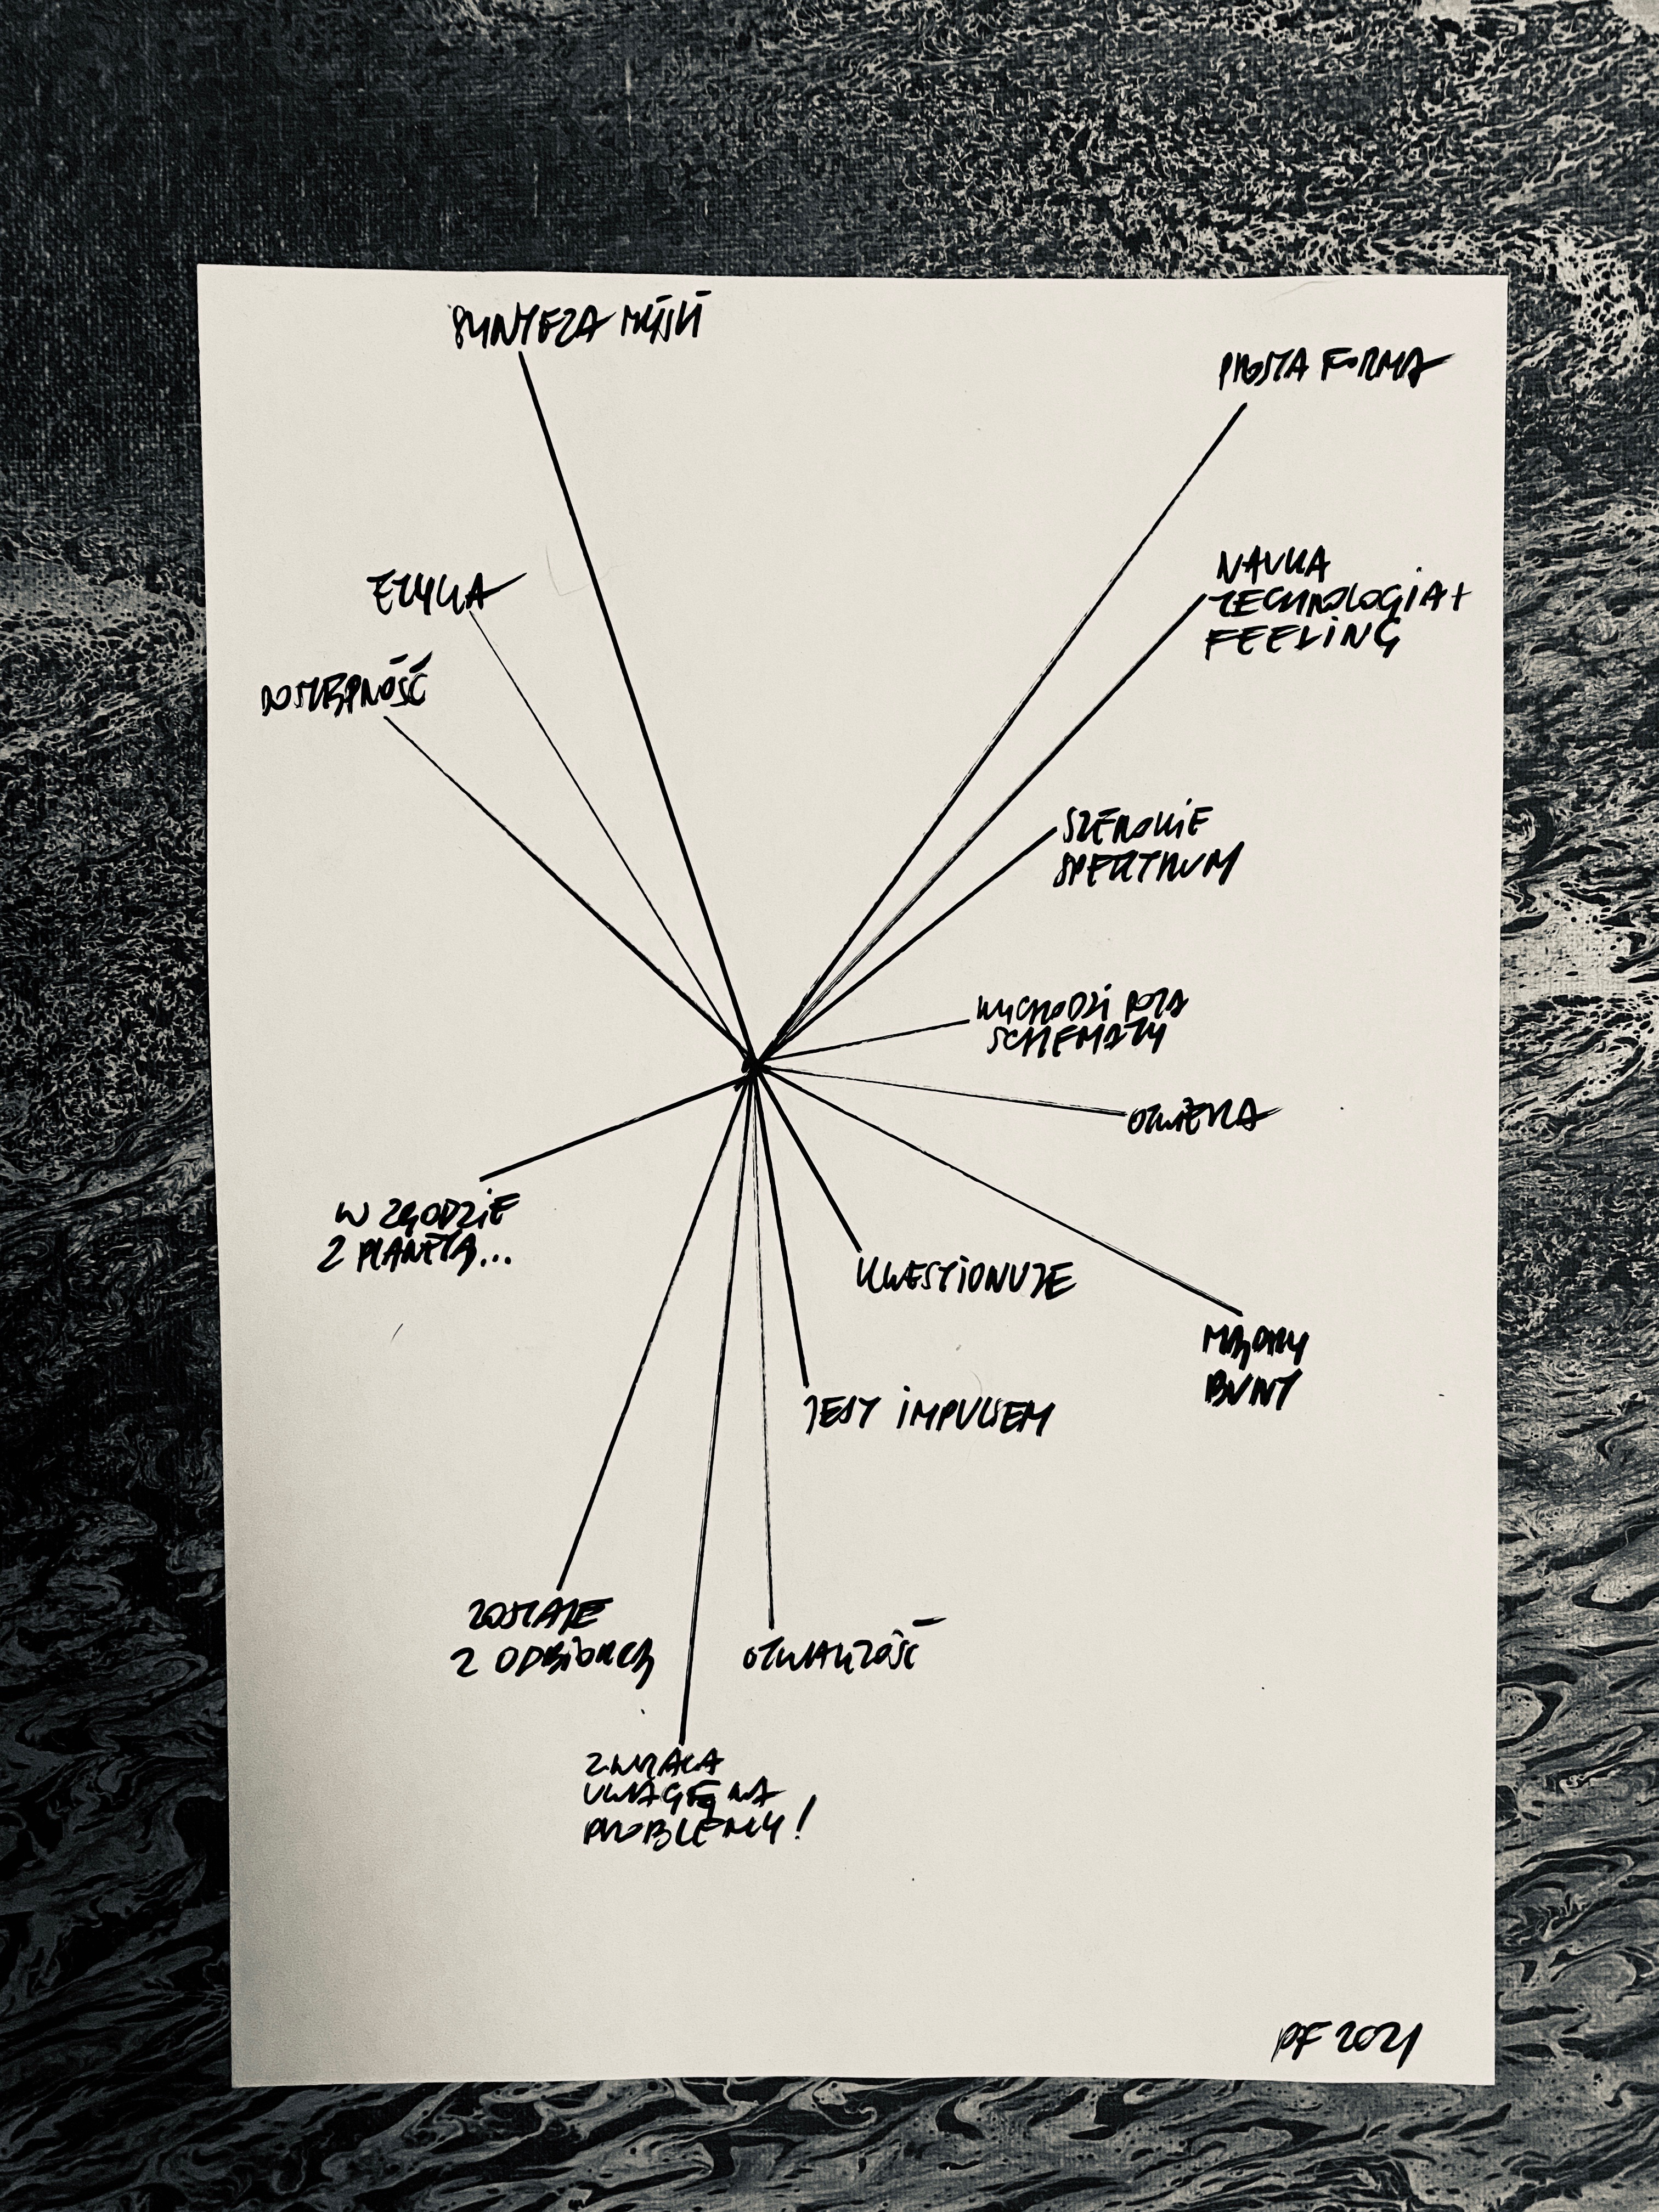 SYNTEZA MYŚLI
PROSTA FORMA
NAUKA
TECHNOLOGIA +
FEELING
ETYKA
DOSTĘPNOŚĆ
SZEROKIE
SPEKTRUM
WYCHODZI POZA
SCHEMATY
OTWIERA
W ZGODZIE
Z PLANETĄ...
KWESTIONUJE
MĄDRY
BUNT
JEST IMPULSEM
ZOSTAJE
Z ODBIORCĄ
OTWARTOŚĆ
ZWRACA
UWAGĘ NA
PROBLEMY!
PF 2021